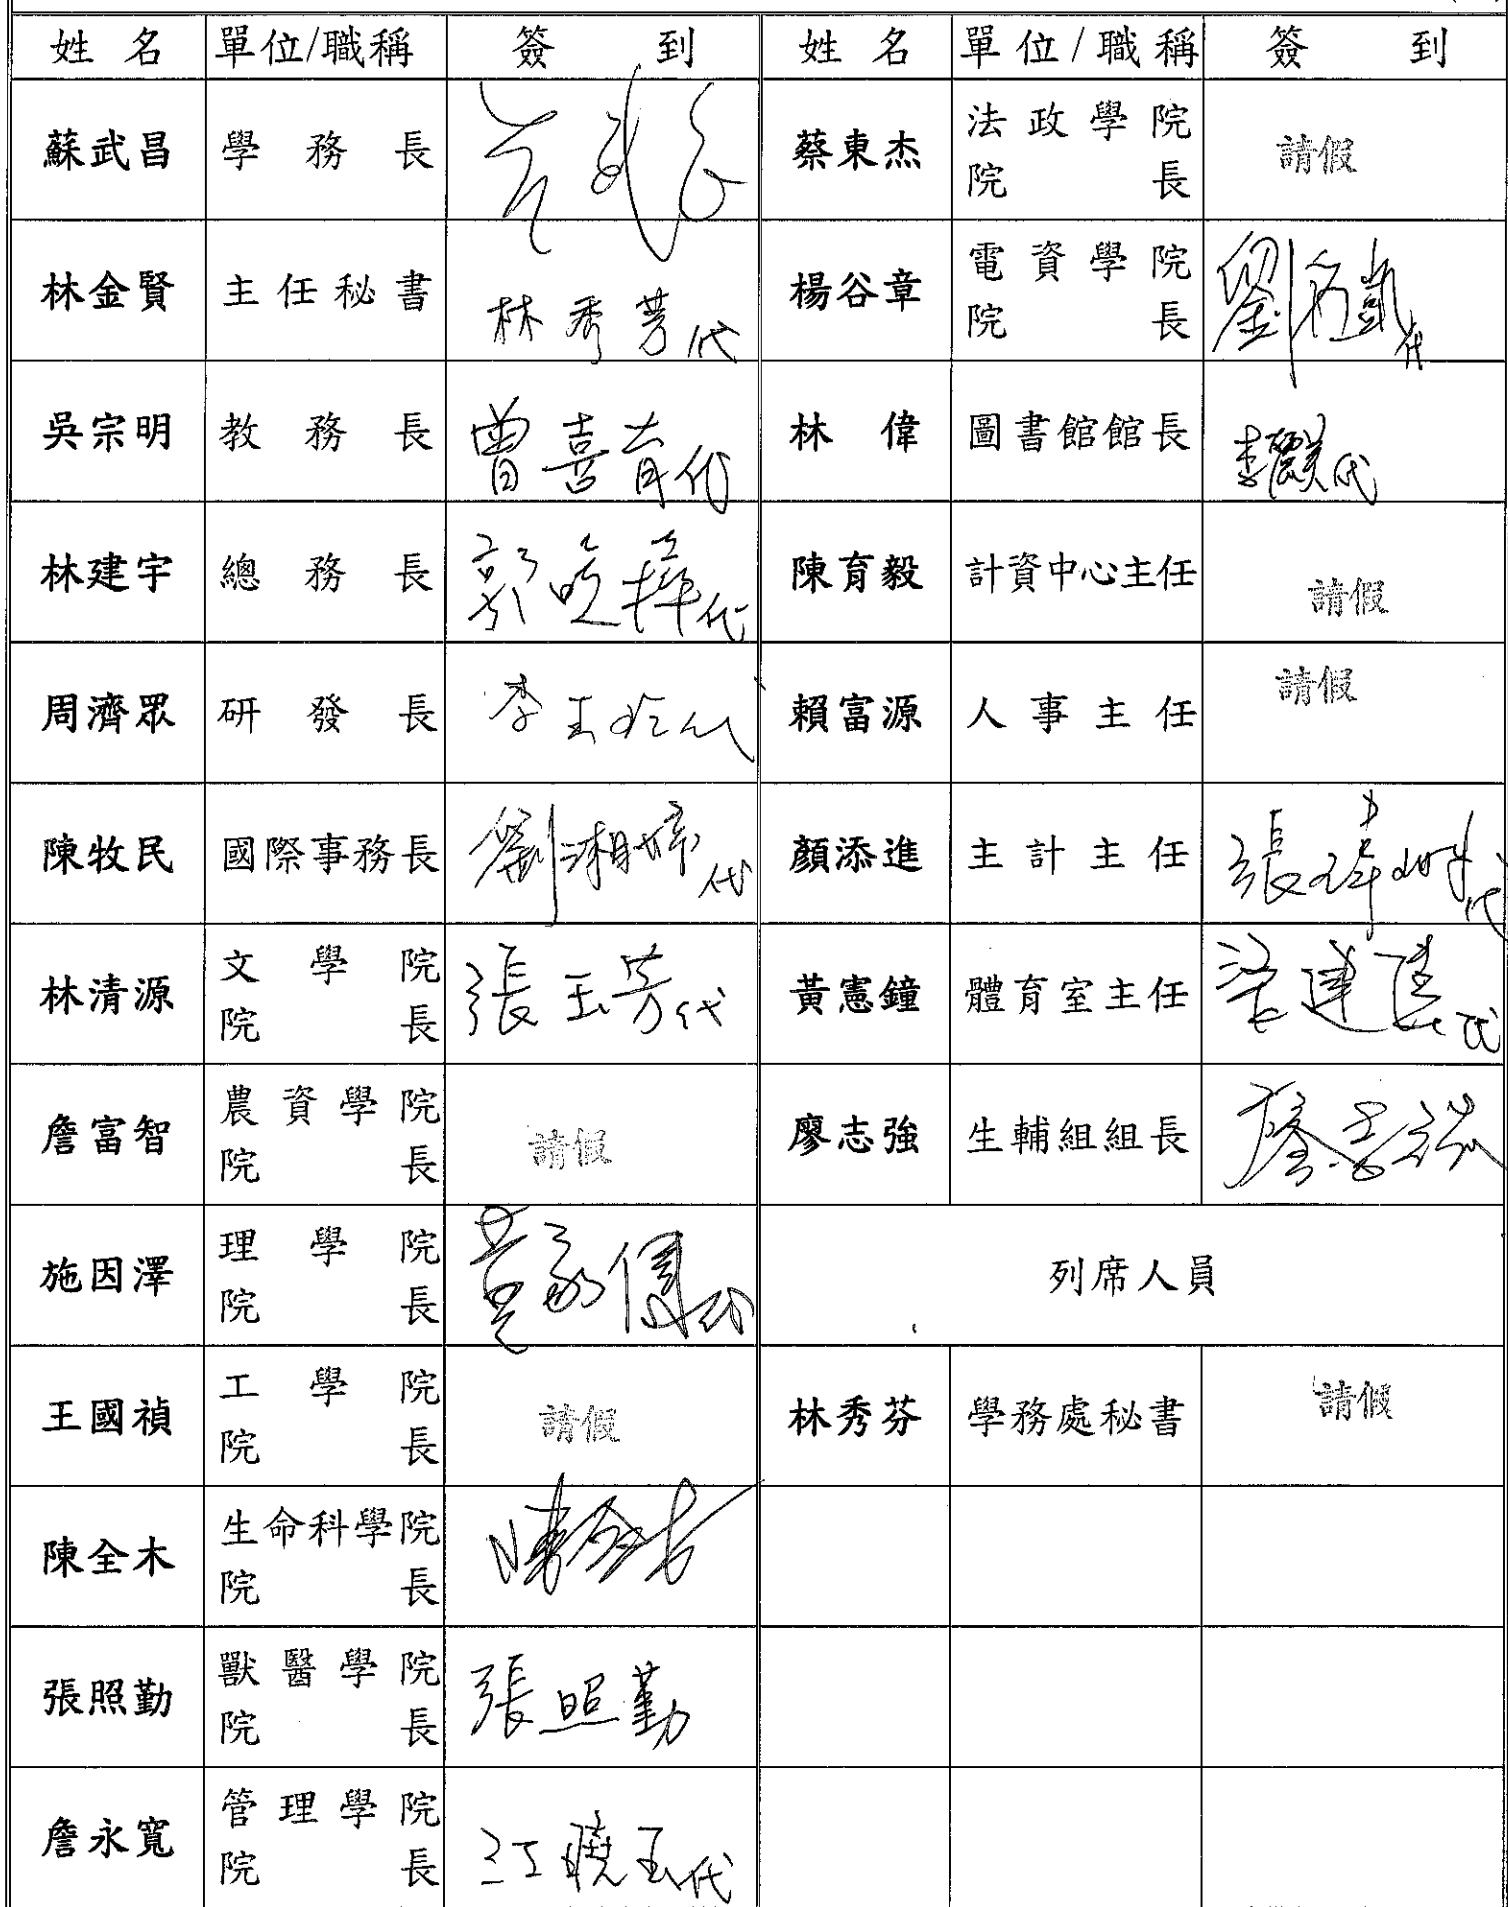 姓名 單位/職稱 簽到 姓名 單位/職稱 簽到
蘇武昌 學務長 蔡東杰 法政學院院長 請假
林金賢 主任秘書 林秀芳代 楊谷章 電資學院院長
吳宗明 教務長 曾喜育代 林偉 圖書館館長 李麗美代
林建宇 總務長 代 陳育毅 計資中心主任 請假
周濟眾 研發長 李玉玲代 賴富源 人事主任 請假
陳牧民 國際事務長 劉湘婷代 顏添進 主計主任 代
林清源 文學院院長 張玉芳代 黃憲鐘 體育室主任 代
詹富智 農資學院院長 請假 廖志強 生輔組組長 廖志強
施因澤 理學院院長 代 列席人員
王國禎 工學院院長 請假 林秀芬 學務處秘書 請假
陳全木 生命科學院院長 陳全木
張照勤 獸醫學院院長 張照勤
詹永寬 管理學院院長 江曉玉代